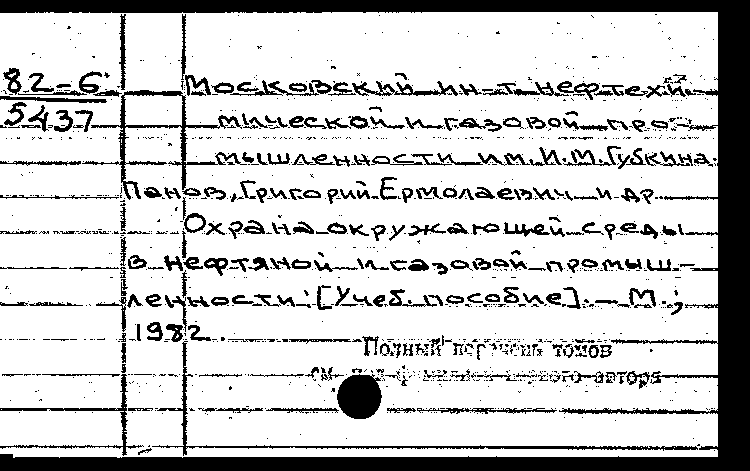 82-6
5437
Московский ин-т нефтехи-
мической и газовой про-
мышленности им. И.М. Губкина.
Панов, Григорий Ермолаевич и др.
Охрана окружающей среды
в нефтяной и газовой промыш-
ленности: [Учеб. пособие]. — М.;
1982.
Полный перечень томов
см. под ф первого автора